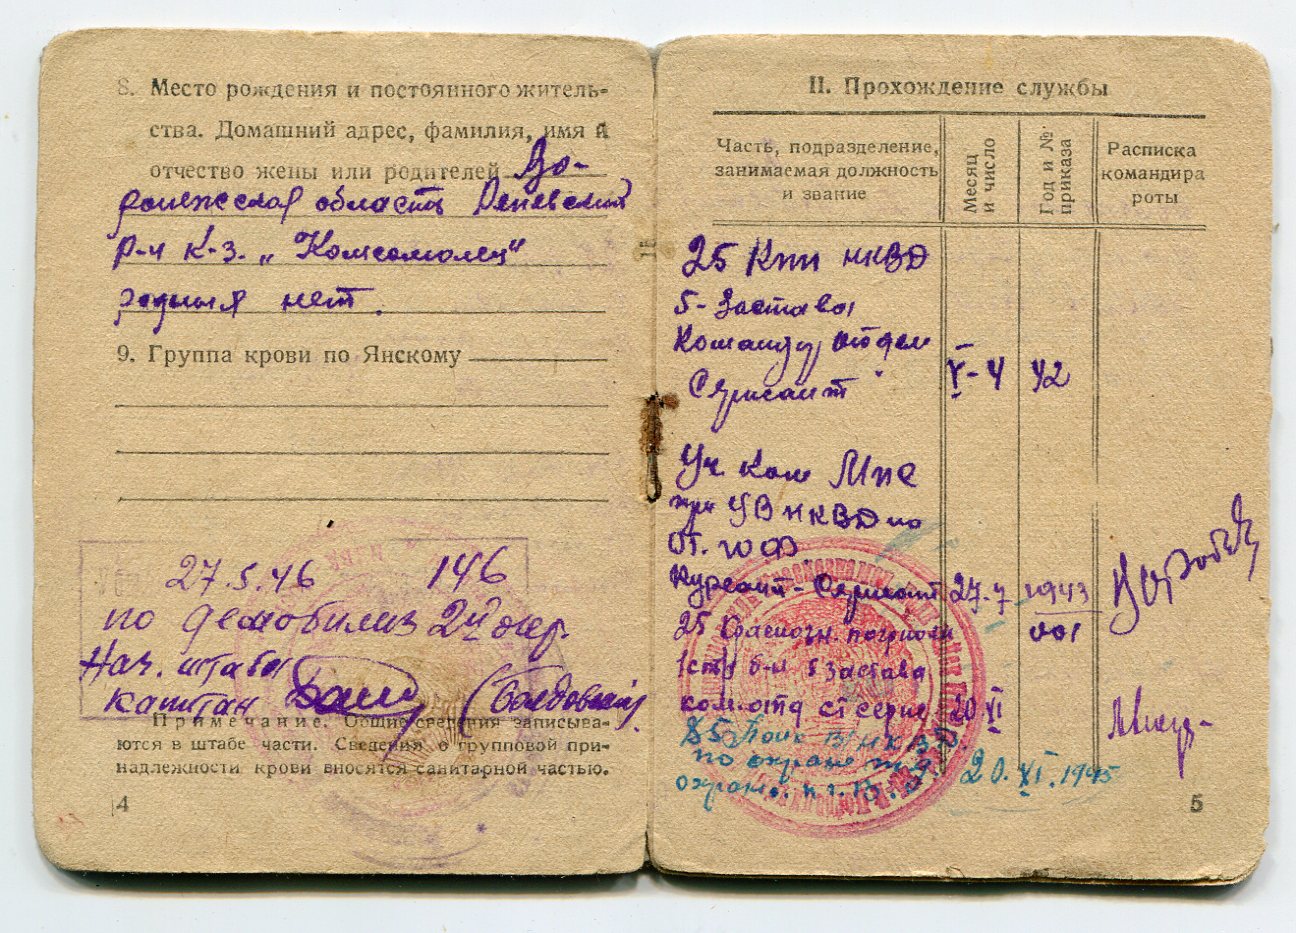 8. Место рождения и постоянного житель-
ства. Домашний адрес, фамилия, имя и
отчество жены или родителей Во-
ронежская область
р-н к-з. „Комсомолец“
родных нет.
9. Группа крови по Янскому
27.5.46 146
по демобилиз 2й очер.
Нач. штаба
капитан (Болдовский)
Примечание. Общие сведения записыва-
ются в штабе части. Сведения о групповой при-
надлежности крови вносятся санитарной частью.
4
II. Прохождение службы
Часть, подразделение,
занимаемая должность
и звание
Месяц
и число
Год и №
приказа
Расписка
командира
роты
25 Кпп НКВД
5-Застава
Командир отдел
Сержант V-4 42
Уч Ком Мпс
при УВ НКВД по
от. ю Ф
Курсант-Сержант 27.7 1943
001
25 Краснозн. погранполк
1стр б-н 1 Застава
ком. отд ст серж 20 XI
В/НКВД
по охране жд
20.XI.1945
5